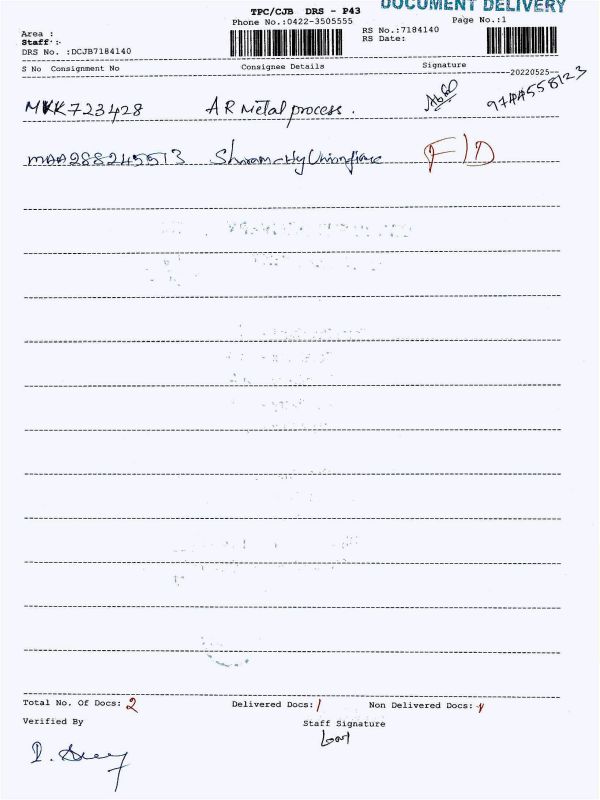 DOCUMENT DELIVERY
TPC/CJB DRS - P43
Phone No.:0422-3505555 Page No.:1
Area : RS No.:7184140
Staff : RS Date:
DRS No. :DCJB7184140
S No Consignment No Consignee Details Signature
20220525
MKK723428 A R Metal process.
MAA288245513
F/D
Total No. Of Docs: 2 Delivered Docs: 1 Non Delivered Docs: 1
Verified By Staff Signature